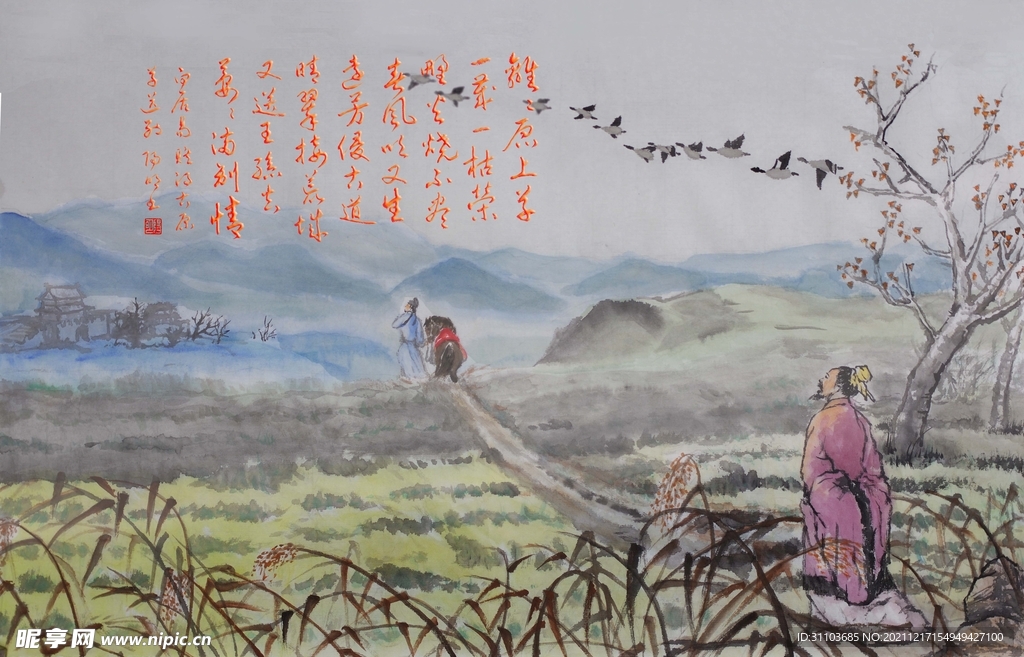 離離原上草
一歲一枯榮
野火燒不盡
春風吹又生
遠芳侵古道
晴翠接荒城
又送王孫去
萋萋滿別情
白居易賦得古原
草送別
昵享网 www.nipic.cn
ID:31103685 NO:20211217154949427100